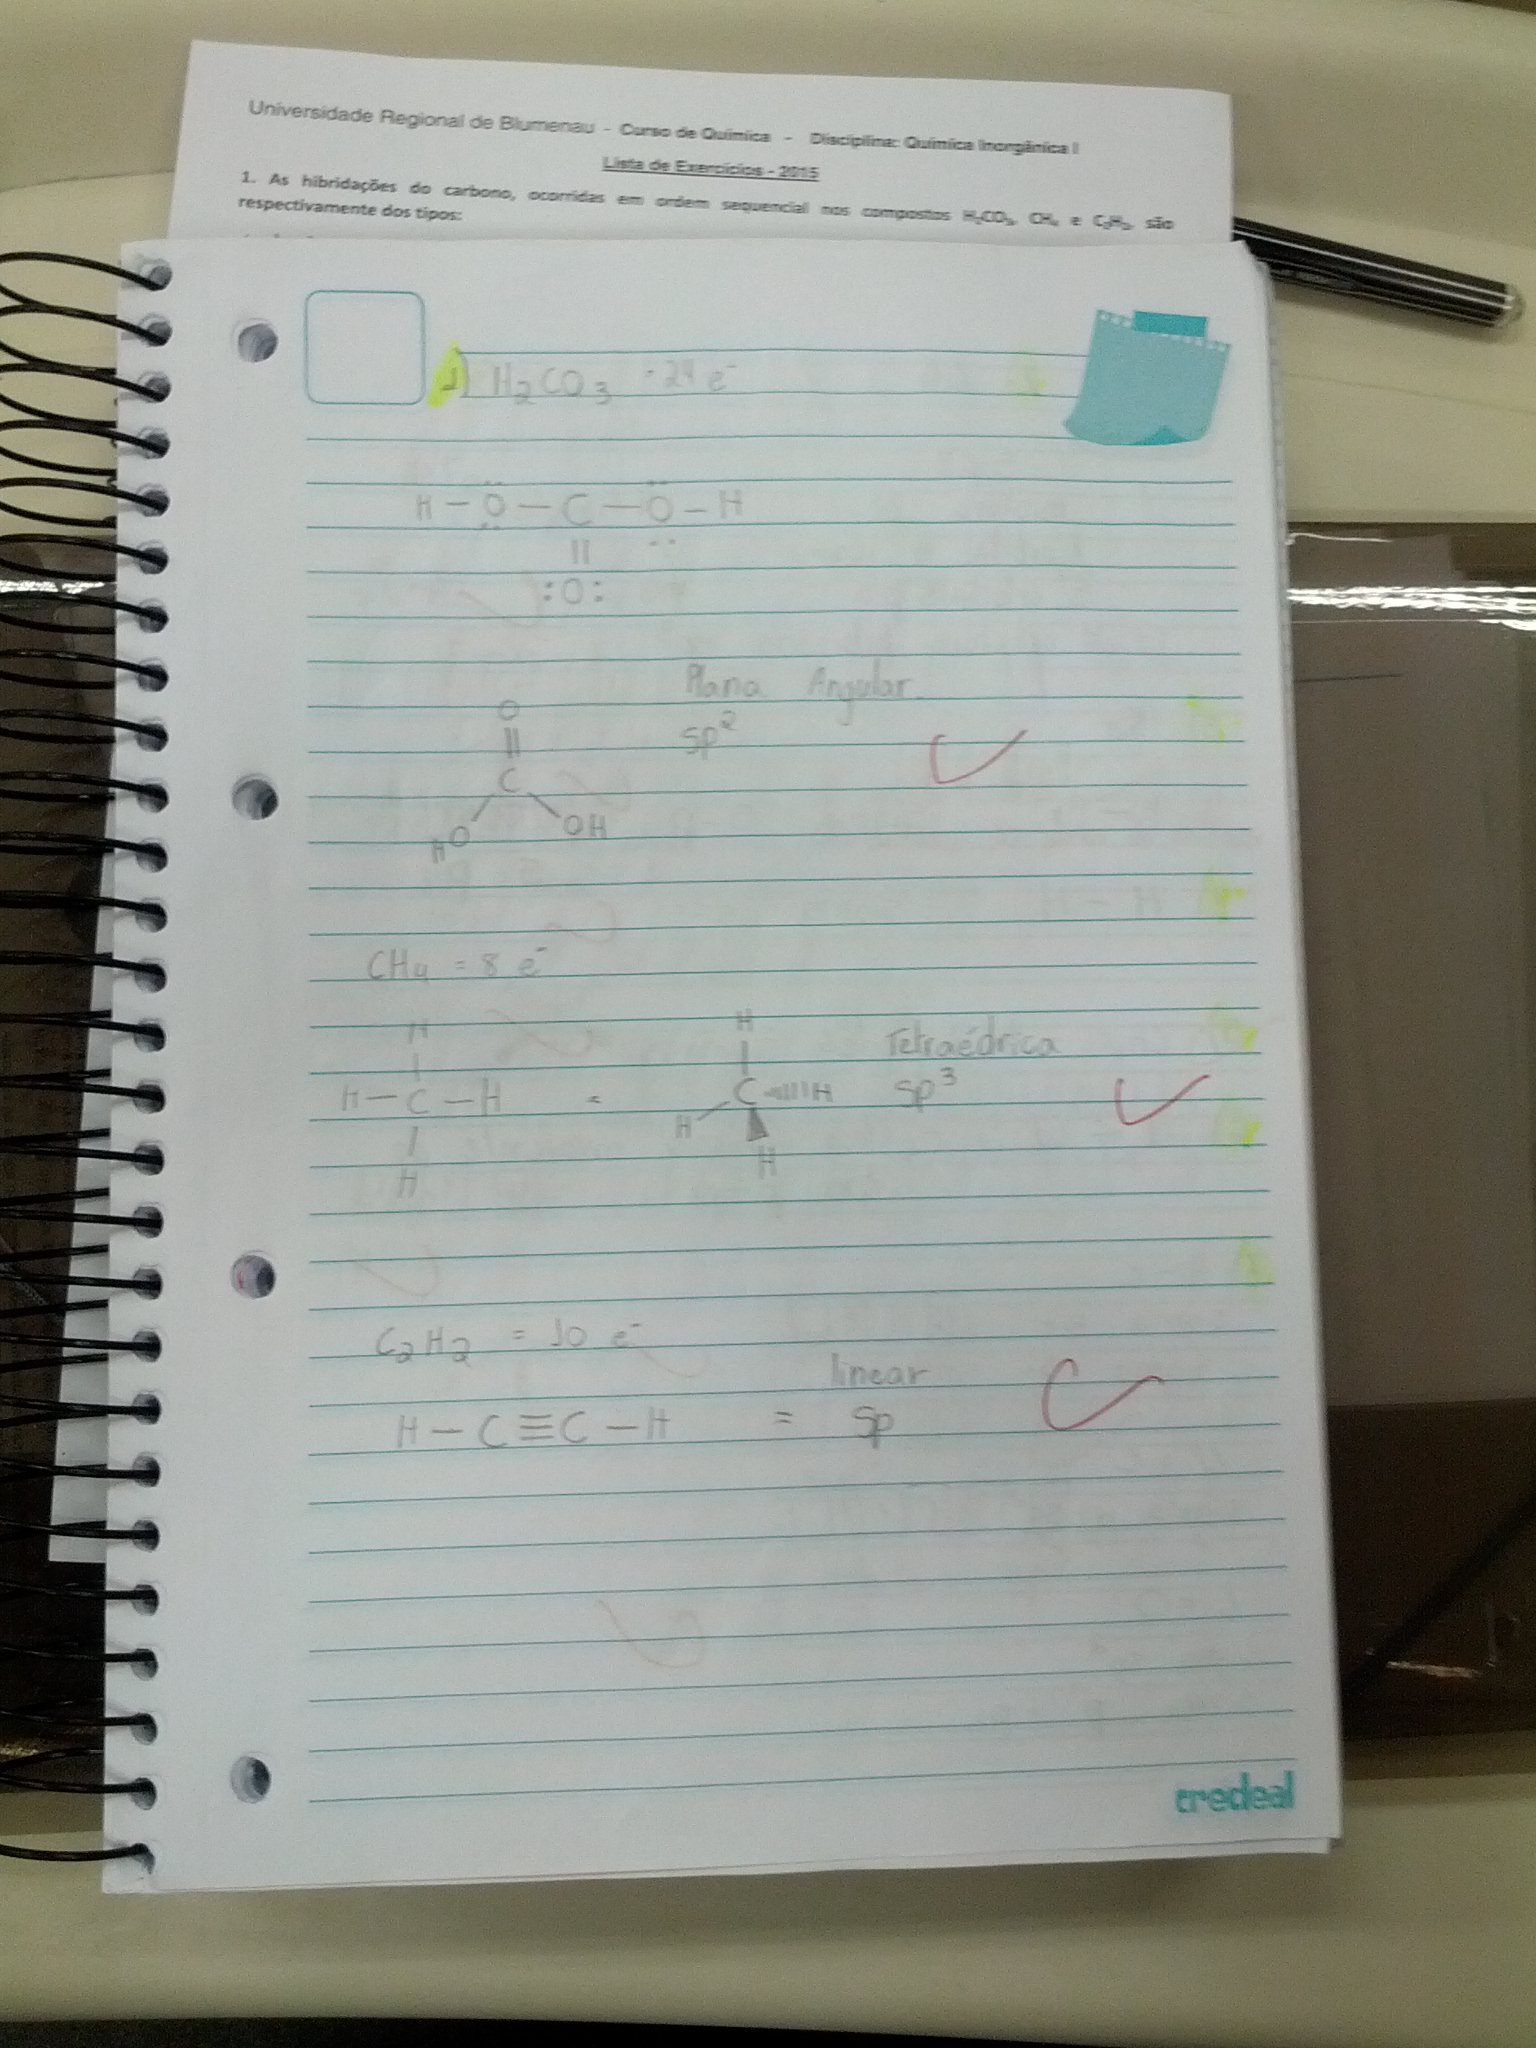 Universidade Regional de Blumenau - Curso de Química - Disciplina: Química Inorgânica I
Lista de Exercícios - 2015
1. As hibridações do carbono, ocorridas em ordem sequencial nos compostos H₂CO₃, CH₄ e C₂H₂, são
respectivamente dos tipos:
1) H₂CO₃ = 24 e⁻
H – O – C – O – H
||
:O:
Plana Angular.
O
sp²
||
C
HO OH
CH₄ = 8 e⁻
H H Tetraédrica
H – C – H = C H sp³
H
H H
C₂H₂ = 10 e⁻
linear
H – C ≡ C – H = sp
credeal